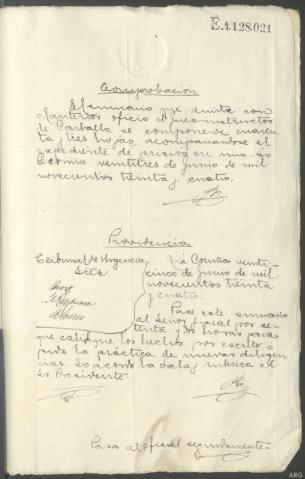 E.4128.021
Comprobación
El sumario que remite con
el anterior oficio el Juez instructor
de Carballo, se compone de cuaren-
ta y tres hojas, acompañandose el
expediente de prision en una. La
Coruña veintitres de Junio de mil
novecientos treinta y cuatro.
Providencia
Tribunal de Urgencia,
Sres
La Coruña veinti-
cinco de Junio de mil
novecientos treinta
y cuatro.
Pase este sumario
al Señor Fiscal por se-
tenta y dos horas para
que califique los hechos por escrito o
pida la práctica de nuevas diligen-
cias. Lo acordó la Sala y rubrica el
Sr. Presidente.
Pasa al oficial seguidamente.
ARG